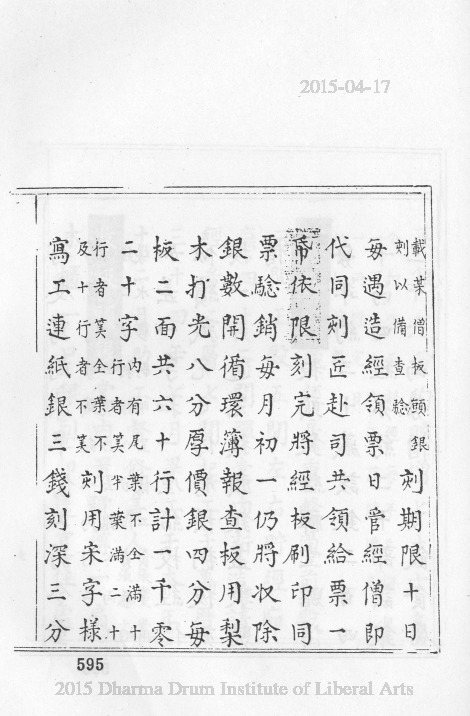 2015-04-17
載葉僧板頭銀
刻以備查驗
刻期限十日
每遇造經領票日管經僧即
代同刻匠赴司共領給票一
帋依限刻完將經板刷印同
票驗銷每月初一仍將収除
銀數開循環簿報查板用梨
木打光八分厚價銀四分每
板二面共六十行計一千零
二十字
內有尾葉不全滿十
行者筭半葉滿二十
行者筭全葉不
及十行者不筭
刻用宋字樣
寫工連紙銀三錢刻深三分
595
2015 Dharma Drum Institute of Liberal Arts